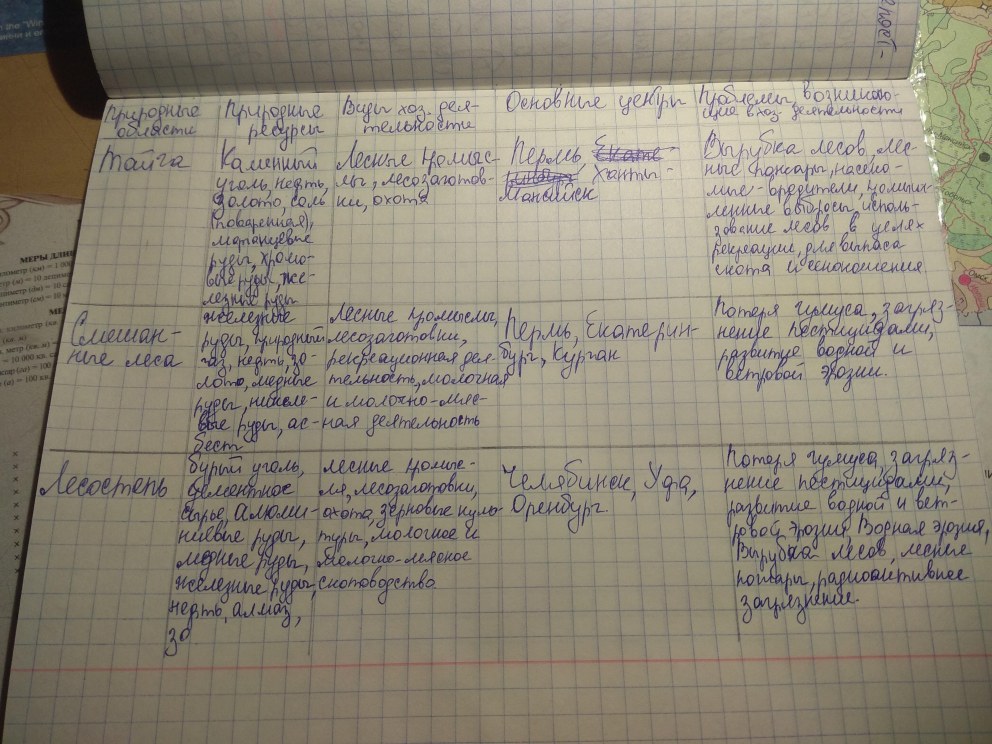 Природные области
Природные ресурсы
Виды хоз. дея-
тельности
Основные центры
Проблемы, возникаю-
щие в хоз. деятельности
Тайга
Каменный
уголь, нефть,
золото, соль
(поваренная),
марганцевые
руды, хромо-
вые руды, же-
лезные руды
Лесные промыс-
лы, лесозаготов-
ки, охота
Пермь,
Ханты-
Мансийск
Вырубка лесов, лес-
ные пожары, насеко-
мые-вредители, промыш-
ленные выбросы, исполь-
зование лесов в целях
рекреации, для выпаса
скота и сенокошения
Смешан-
ные леса
железные
руды, природный
газ, нефть, зо-
лото, медные
руды, никеле-
вые руды, ас-
бест
Лесные промыслы,
лесозаготовки,
рекреационная дея-
тельность, молочная
и молочно-мяс-
ная деятельность
Пермь, Екатерин-
бург, Курган
Потеря гумуса, загряз-
нение пестицидами,
развитие водной и
ветровой эрозии.
Лесостепь
бурый уголь,
цементное
сырье, алюми-
ниевые руды,
медные руды,
железные руды,
нефть, алмаз,
зо
лесные промыс-
ля, лесозаготовки,
охота, зерновые куль-
туры, молочное и
молочно-мясное
скотоводство
Челябинск, Уфа,
Оренбург
Потеря гумуса, загряз-
нение пестицидами,
развитие водной и вет-
ровой эрозии, Водная эрозия,
Вырубка лесов, лесные
пожары, радиоактивное
загрязнение.
МЕРЫ ДЛИН